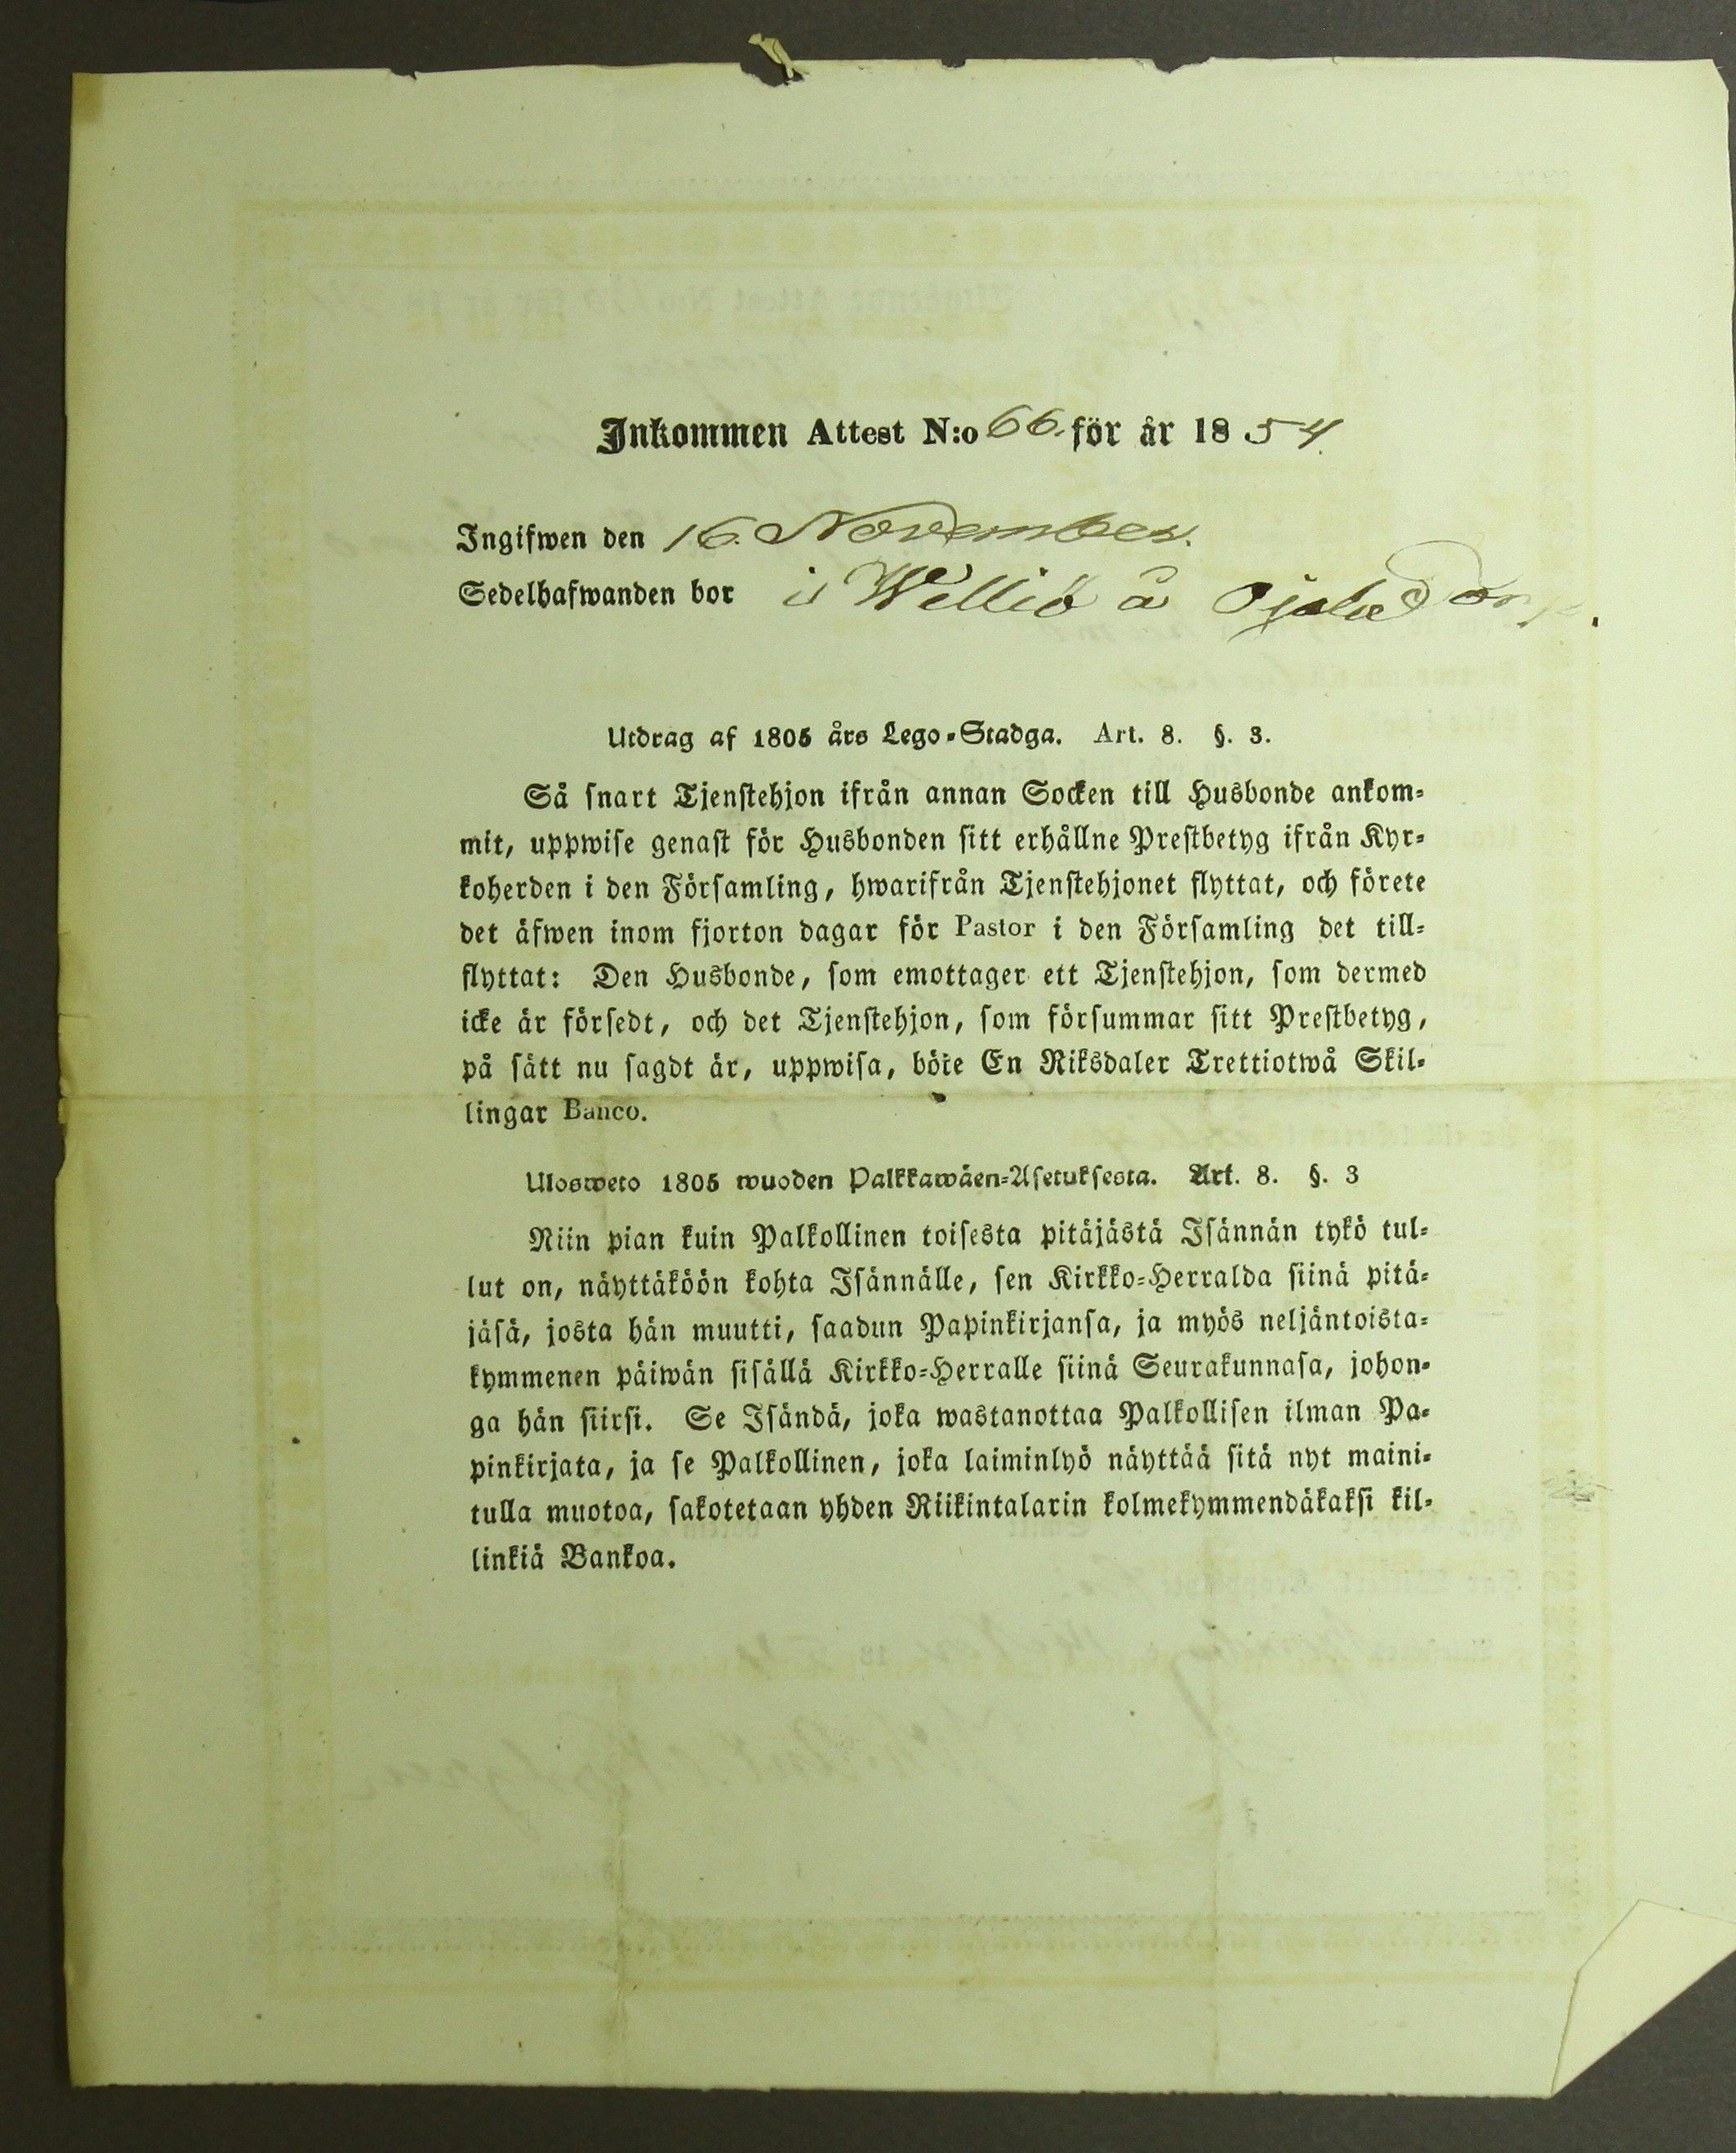 Inkommen Attest N:o 66. för år 1854.
Ingifwen den 16. November.
Sedelhafwanden bor i Wellilä å Ojala Torp.
Utdrag af 1805 års Lego-Stadga. Art. 8. §. 3.
Så snart Tjenstehjon ifrån annan Socken till Husbonde ankom-
mit, uppwise genast för Husbonden sitt erhållne Prestbetyg ifrån Kyr-
koherden i den Församling, hwarifrån Tjenstehjonet flyttat, och förete
det äfwen inom fjorton dagar för Pastor i den Församling det till-
flyttat: Den Husbonde, som emottager ett Tjenstehjon, som dermed
icke är försedt, och det Tjenstehjon, som försummar sitt Prestbetyg,
på sätt nu sagdt är, uppwisa, böte En Riksdaler Trettiotwå Skil-
lingar Banco.
Ulosweto 1805 wuoden Palkkawäen-Asetuksesta. Art. 8. §. 3
Niin pian kuin Palkollinen toisesta pitäjästä Isännän tykö tul-
lut on, näyttäköön kohta Isännälle, sen Kirkko-Herralda siinä pitä-
jäsä, josta hän muutti, saadun Papinkirjansa, ja myös neljäntoista-
kymmenen päiwän sisällä Kirkko-Herralle siinä Seurakunnasa, johon-
ga hän siirsi. Se Isändä, joka wastanottaa Palkollisen ilman Pa-
pinkirjata, ja se Palkollinen, joka laiminlyö näyttää sitä nyt maini-
tulla muotoa, sakotetaan yhden Riikintalarin kolmekymmendäkaksi kil-
linkiä Bankoa.